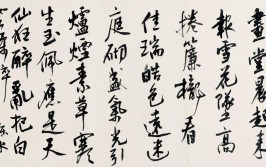 畫堂晨起來
報雪花墜高
捲簾櫳看
佳瑞皓色遠迷
庭砌盛氣光引
爐煙素草寒
生玉佩應是天
仙狂醉亂把白